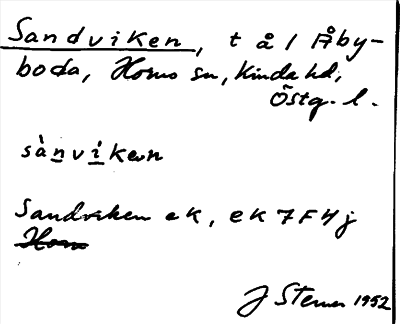 Sandviken, t å l Åby-
boda, Horns sn, Kinda hd,
Östg. l.
sànvíken
Sandviken ek, ek 7F4j
Horn
J Sterner 1952